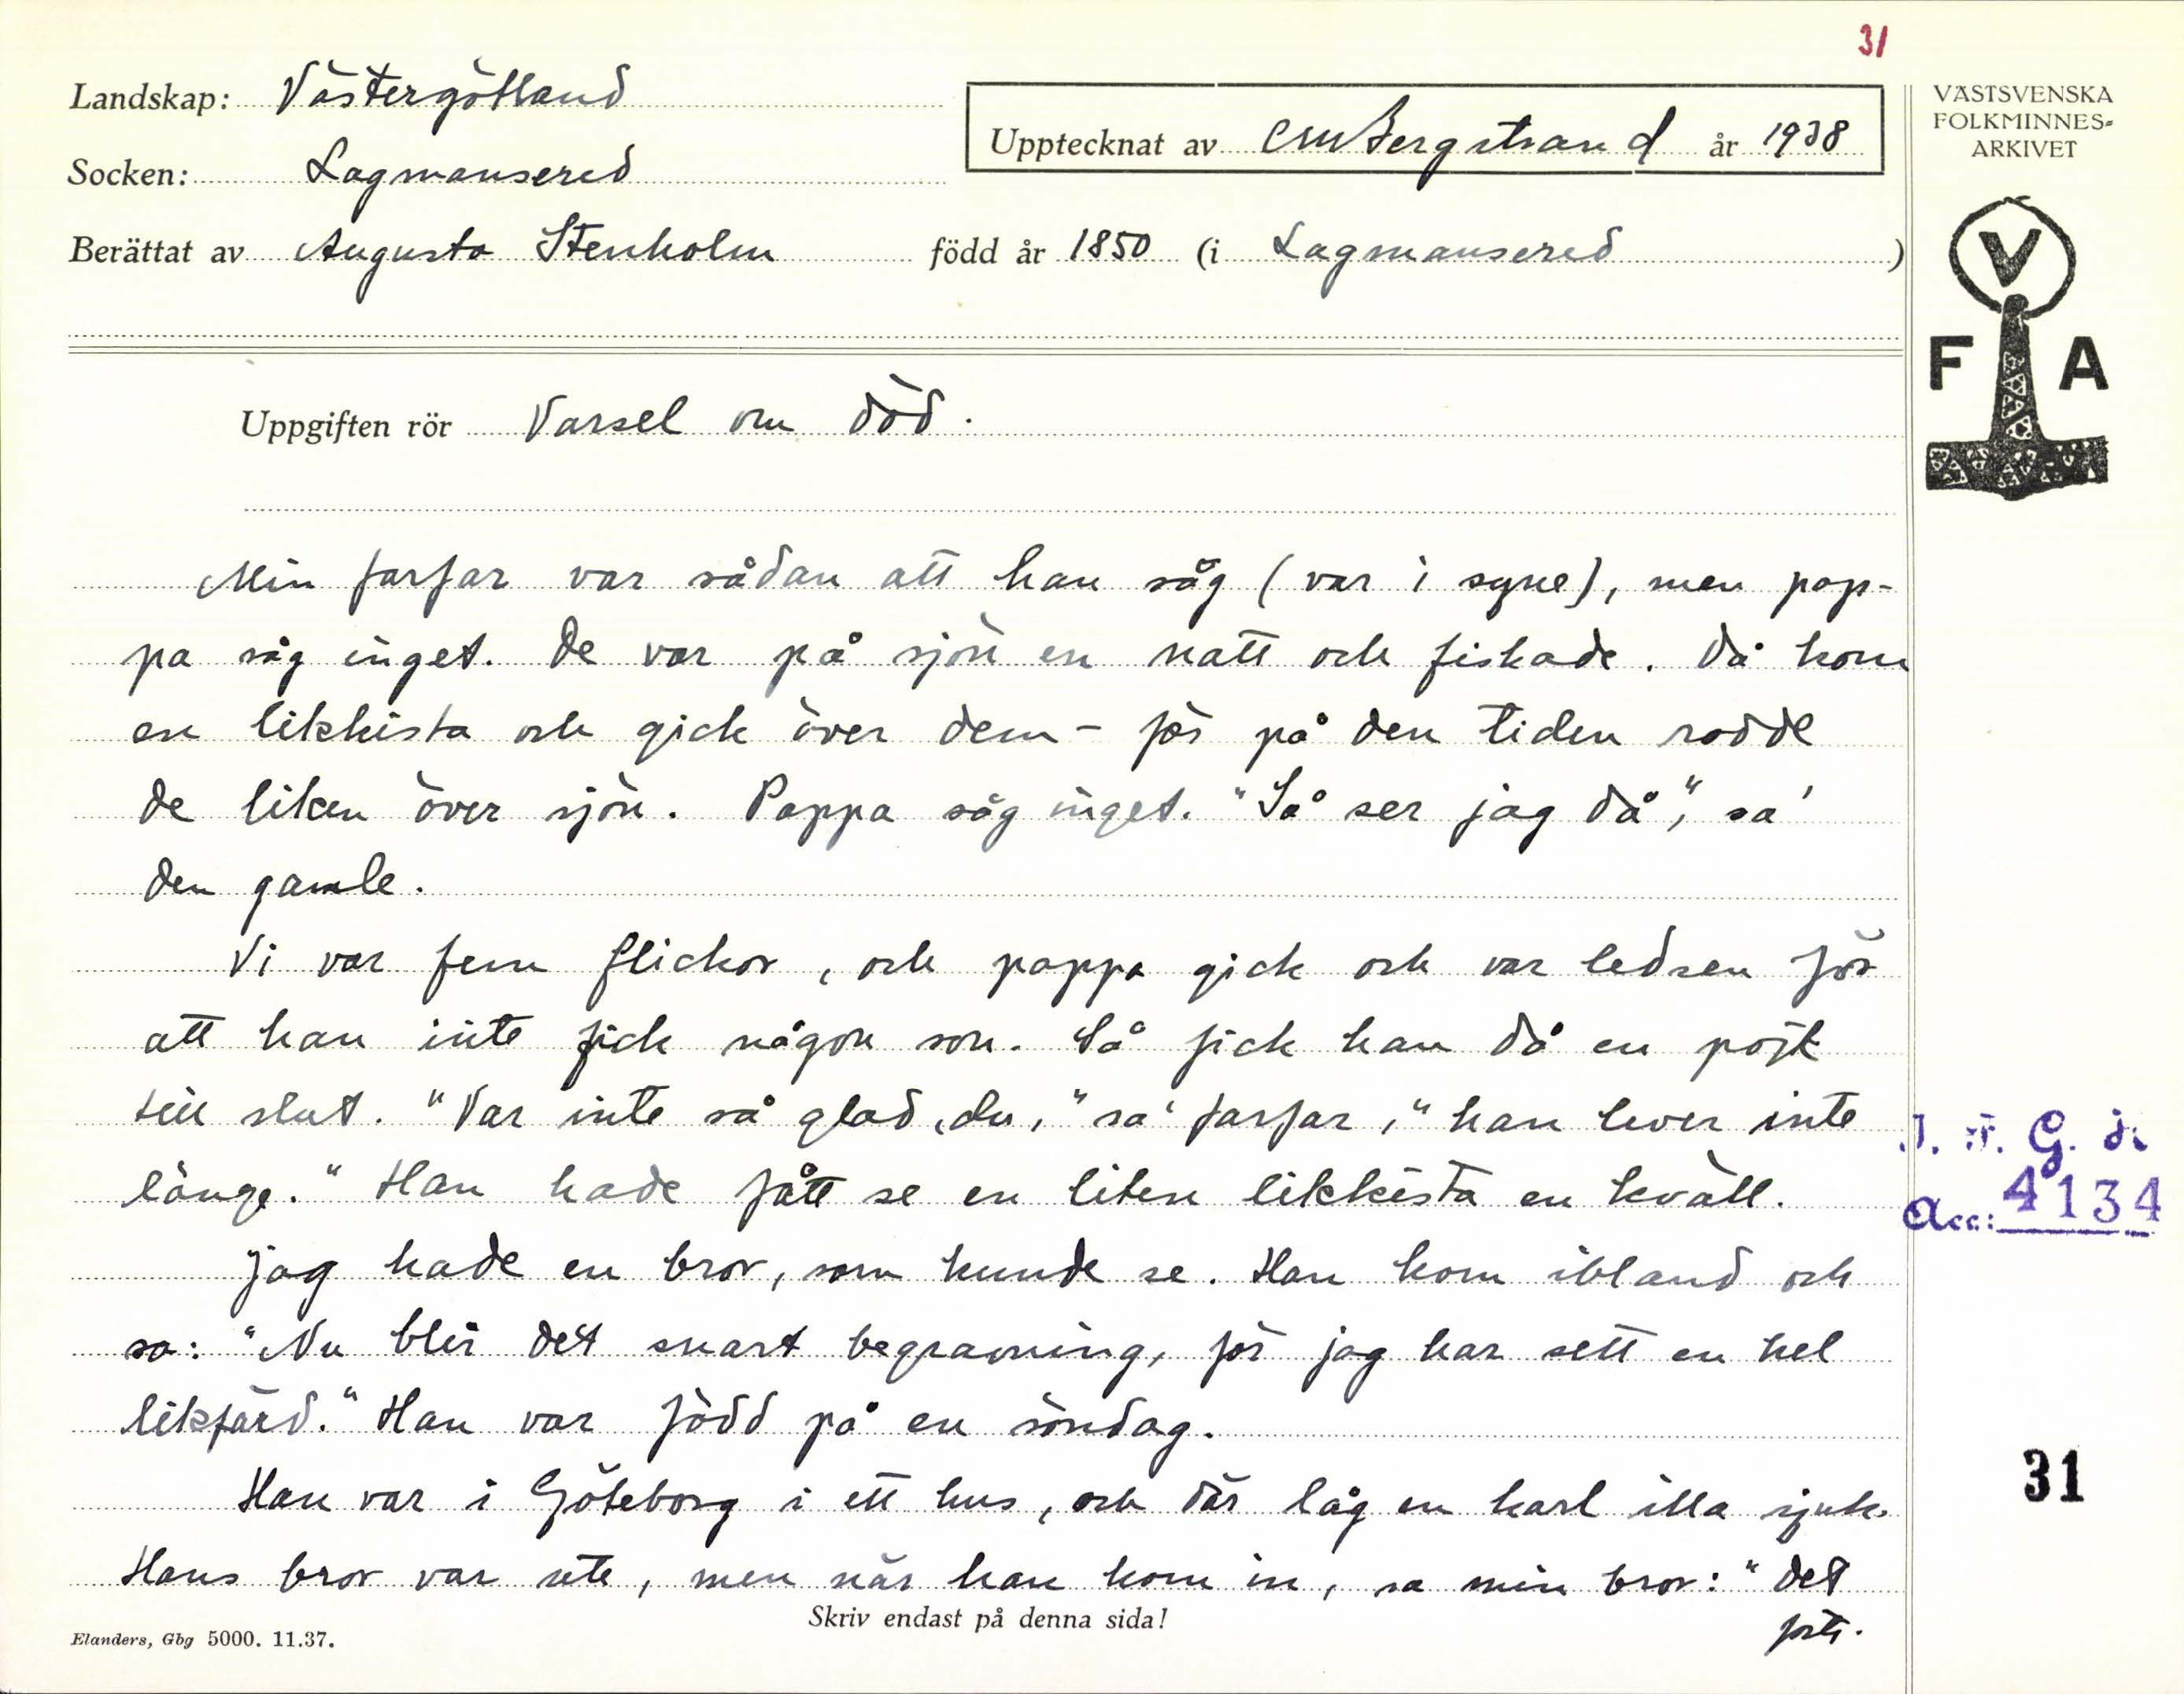 31
Landskap: Västergötland
Socken: Lagmansered
Upptecknat av CMBergstrand år 1938
Berättat av Augusta Stenholm född år 1850 (i Lagmansered)
VÄSTSVENSKA
FOLKMINNES-
ARKIVET
V
F A
Uppgiften rör Varsel om död.
Min farfar var sådan att han såg (var i syne), men pap-
pa såg inget. De var på sjön en natt och fiskade. Då kom
en likkista och gick över dem - för på den tiden rodde
de liken över sjön. Pappa såg inget. "Så ser jag då", sa'
den gamle.
Vi var fem flickor, och pappa gick och var ledsen för
att han inte fick någon son. Så fick han då en pojk
till slut. "Var inte så glad, du," sa' farfar, "han lever inte
länge." Han hade fått se en liten likkista en kväll.
Jag hade en bror, som kunde se. Han kom ibland och
sa: "Nu blir det snart begravning, för jag har sett en hel
likfärd." Han var född på en söndag.
Han var i Göteborg i ett hus, och där låg en karl illa sjuk.
Hans bror var ute, men när han kom in, sa min bror: "Det
forts.
G.
Acc: 4134
31
Skriv endast på denna sida!
Elanders, Gbg 5000. 11.37.